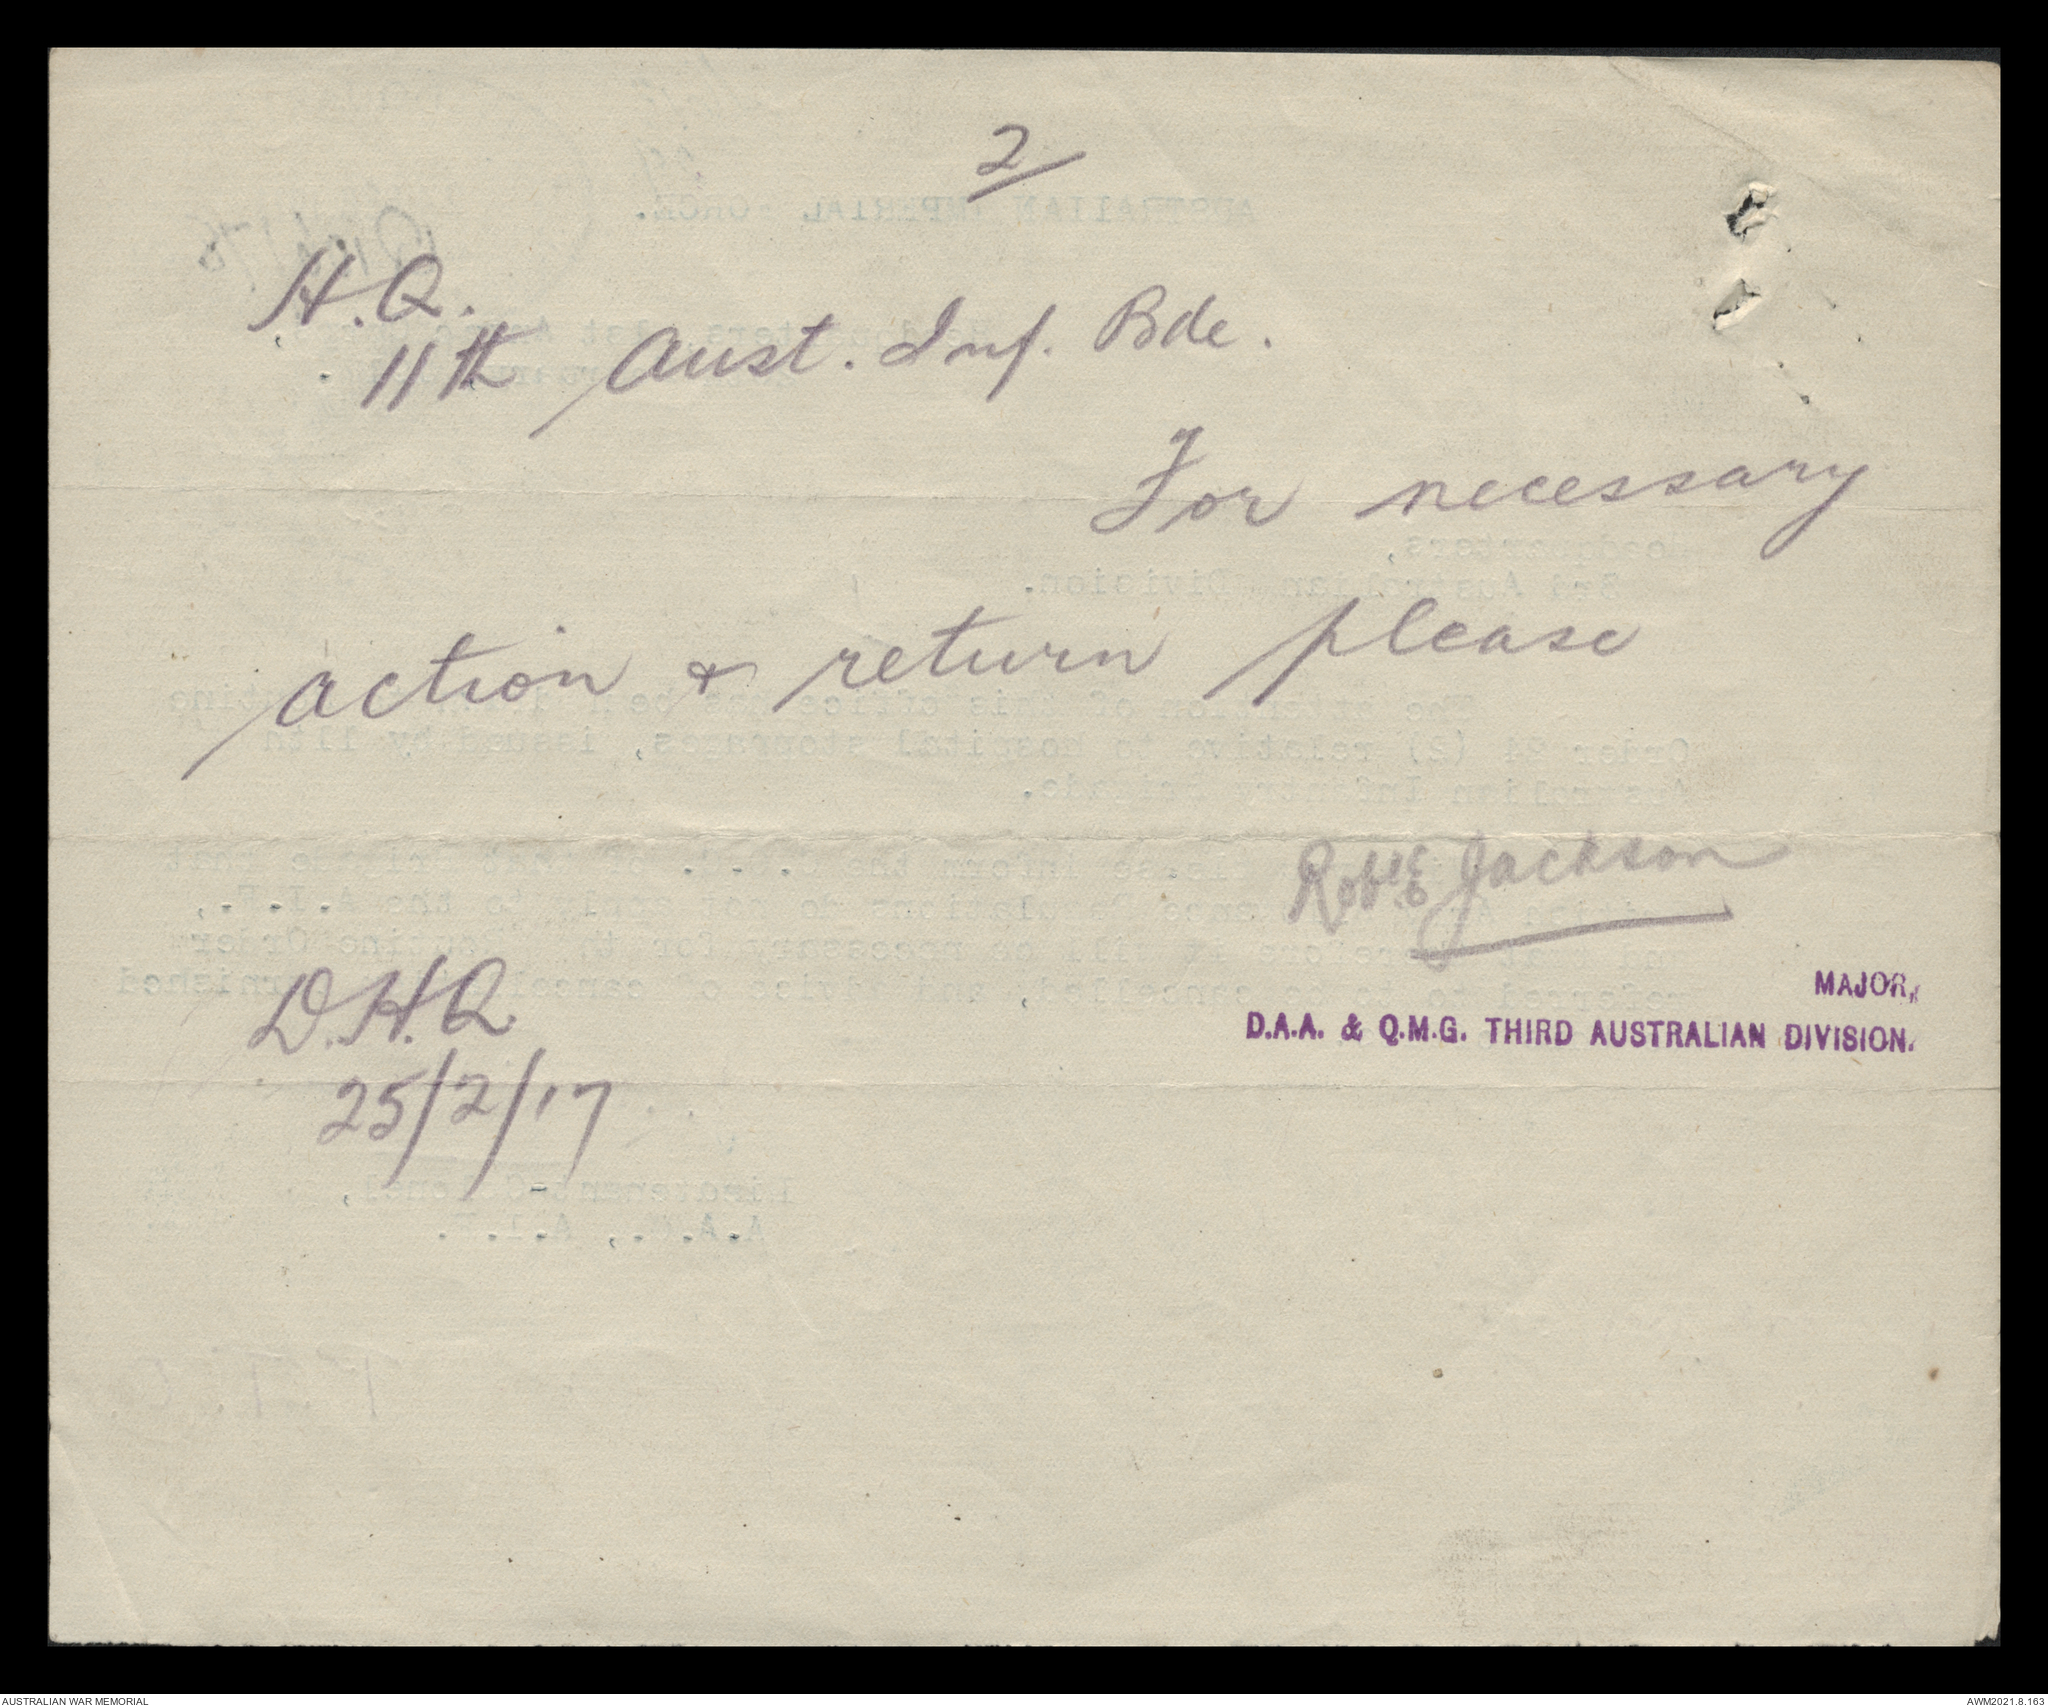 2/
H.Q.
11th Aust. Inf. Bde.
For necessary
action & return please
Robt E Jackson
MAJOR,
D.A.A. & Q.M.G. THIRD AUSTRALIAN DIVISION.
D.H.Q
25/2/17
AUSTRALIAN WAR MEMORIAL
AWM2021.8.163